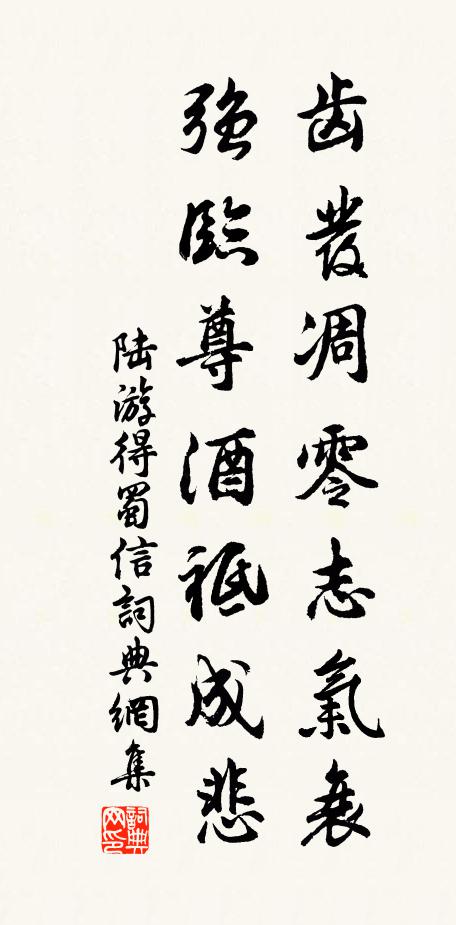 齿發凋零志氣衰
強臨尊酒祇成悲
陆游得蜀信詞典網集
詞典
网印